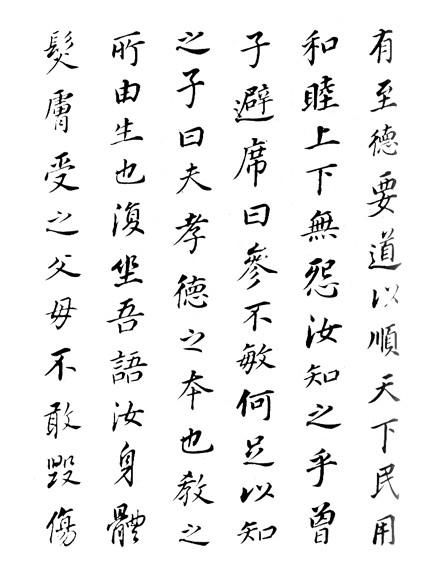 有至德要道以順天下民用
和睦上下無怨汝知之乎曾
子避席曰參不敏何足以知
之子曰夫孝德之本也教之
所由生也復坐吾語汝身體
髮膚受之父母不敢毀傷